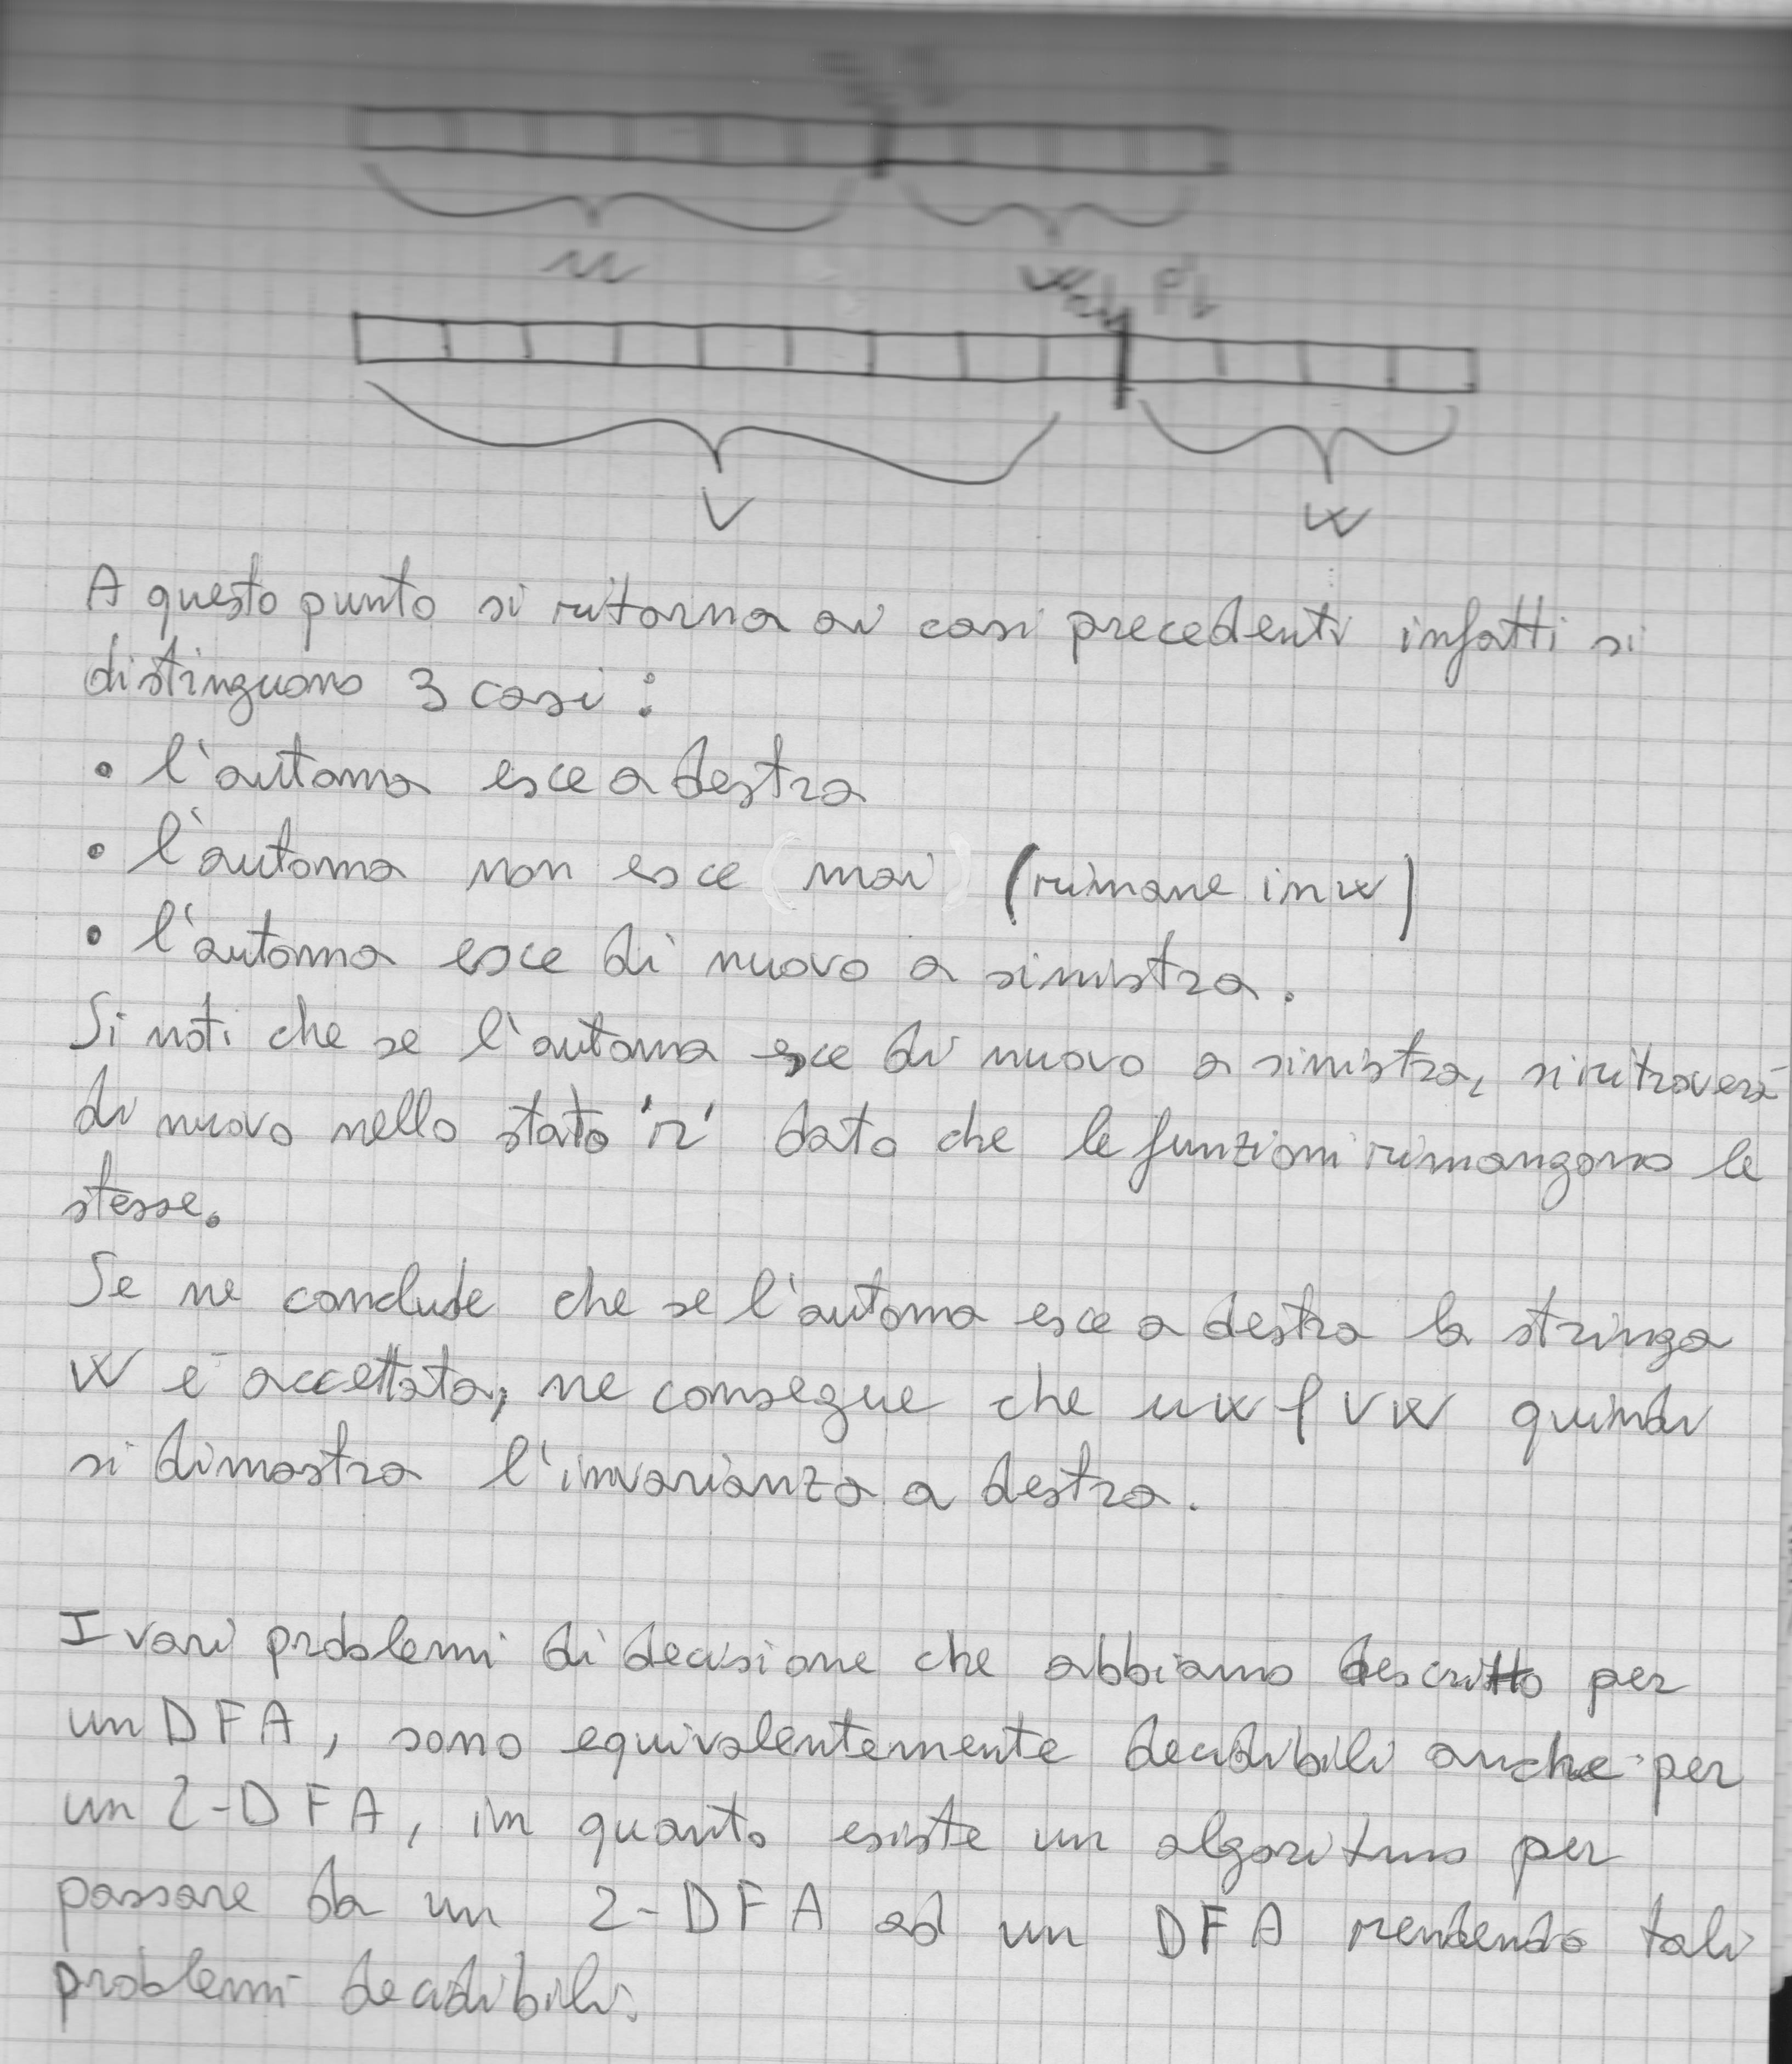 u
w
V
w
A questo punto si ritorna ai casi precedenti infatti si
distinguono 3 casi:
• l'automa esce a destra
• l'automa non esce (mai) (rimane in w)
• l'automa esce di nuovo a sinistra.
Si noti che se l'automa esce di nuovo a sinistra, si ritroverà
di nuovo nello stato 'r' dato che le funzioni rimangono le
stesse.
Se ne conclude che se l'automa esce a destra la stringa
W è accettata, ne consegue che uw ρ vw quindi
si dimostra l'invarianza a destra.
I vari problemi di decisione che abbiamo descritto per
un DFA, sono equivalentemente decidibili anche per
un 2-DFA, in quanto esiste un algoritmo per
passare da un 2-DFA ad un DFA rendendo tali
problemi decidibili.